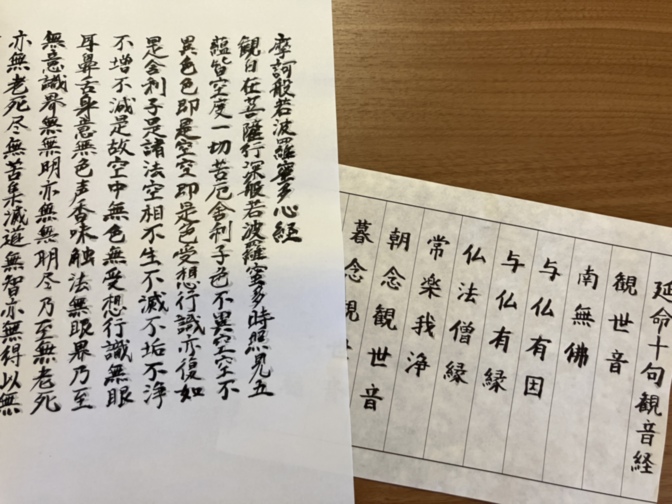 摩訶般若波羅蜜多心経
観自在菩薩行深般若波羅蜜多時照見五
蘊皆空度一切苦厄舎利子色不異空空不
異色色即是空空即是色受想行識亦復如
是舎利子是諸法空相不生不滅不垢不浄
不増不減是故空中無色無受想行識無眼
耳鼻舌身意無色声香味触法無眼界乃至
無意識界無無明亦無無明尽乃至無老死
亦無老死尽無苦集滅道無智亦無得以無
延命十句観音経
観世音
南無佛
与仏有因
与仏有縁
仏法僧縁
常楽我浄
朝念観世音
暮念観